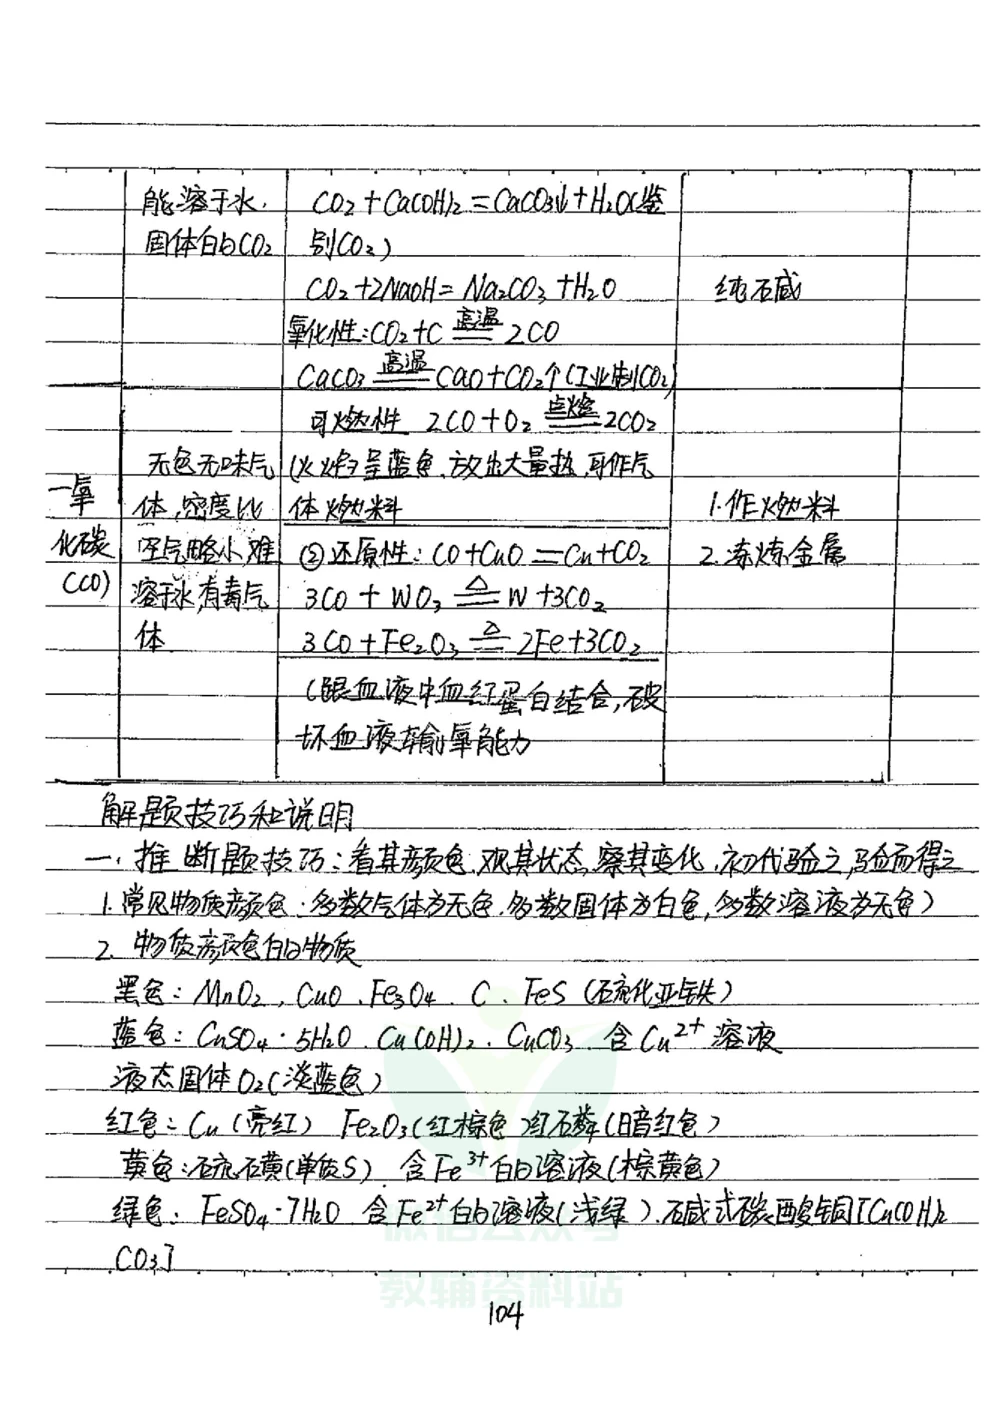 能溶于水.
固体白的CO2
CO2+Ca(OH)2=CaCO3↓+H2O(鉴
别CO2)
CO2+2NaOH=Na2CO3+H2O
纯石碱
氧化性:CO2+C 高温 2CO
CaCO3 高温 CaO+CO2↑(工业制CO2)
可燃性 2CO+O2 点燃 2CO2
一氧
化碳
(CO)
无色无味气
体,密度比
空气略小难
溶于水,有毒气
体
(火焰呈蓝色.放出大量热,可作气
体燃料
②还原性:CO+CuO=Cu+CO2
3CO+WO3 △ W+3CO2
3CO+Fe2O3 △ 2Fe+3CO2
(跟血液中血红蛋白结合,破
坏血液输氧能力
1.作燃料
2.冻炼金属
解题技巧和说明
一.推断题技巧:看其颜色,观其状态,察其变化,初代验之,验而得之
1.常见物质颜色.多数气体为无色.多数固体为白色,多数溶液为无色)
2.物质颜色的物质
黑色:MnO2、CuO、Fe3O4.C.FeS(硫化亚铁)
蓝色:CuSO4·5H2O.Cu(OH)2.CuCO3.含Cu2+溶液
液态固体O2(淡蓝色)
红色:Cu(亮红) Fe2O3(红棕色)红磷(暗红色)
黄色:硫磺(单质S) 含Fe3+的溶液(棕黄色)
绿色:FeSO4·7H2O 含Fe2+的溶液(浅绿).碱式碳酸铜[Cu(OH)2
CO3]
教辅资料站
104